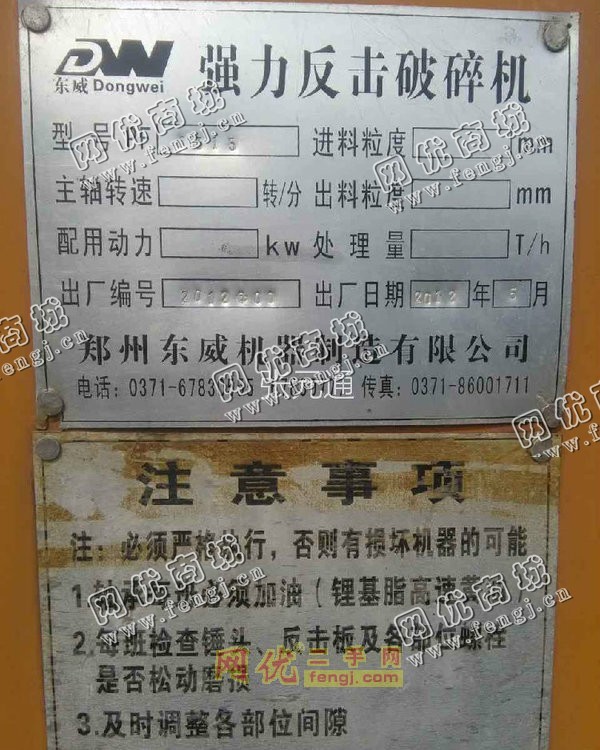 DW
东威 Dongwei
强力反击破碎机
型号 15 进料粒度 mm
主轴转速 转/分 出料粒度 mm
配用动力 kw 处理量 T/h
出厂编号 出厂日期 2012 年 5 月
郑州东威机器制造有限公司
电话: 传真: 0371-86001711
注意事项
注: 必须严格执行,否则有损坏机器的可能
1.轴承每班必须加油(锂基脂高速
2.每班检查锤头、反击板及各部位螺栓
是否松动磨损
3.及时调整各部位间隙
网优商城
www.fengj.cn
网优商城
www.fengj.cn
网优商城
www.fengj.cn
网优商城
www.fengj.cn
网优商城
www.fengj.cn
网优商城
www.fengj.cn
网优二手网
fengj.com